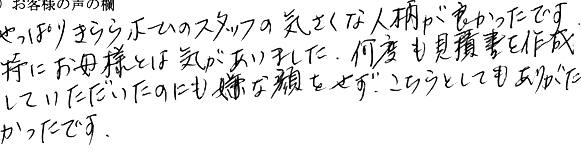 ) お客様の声の欄
やっぱりきららホームのスタッフの気さくな人柄が良かったです
特にお母様とは気があいました．何度も見積書を作成
していただいたのにも嫌な顔をせず．こちらとしてもありがた
かったです．